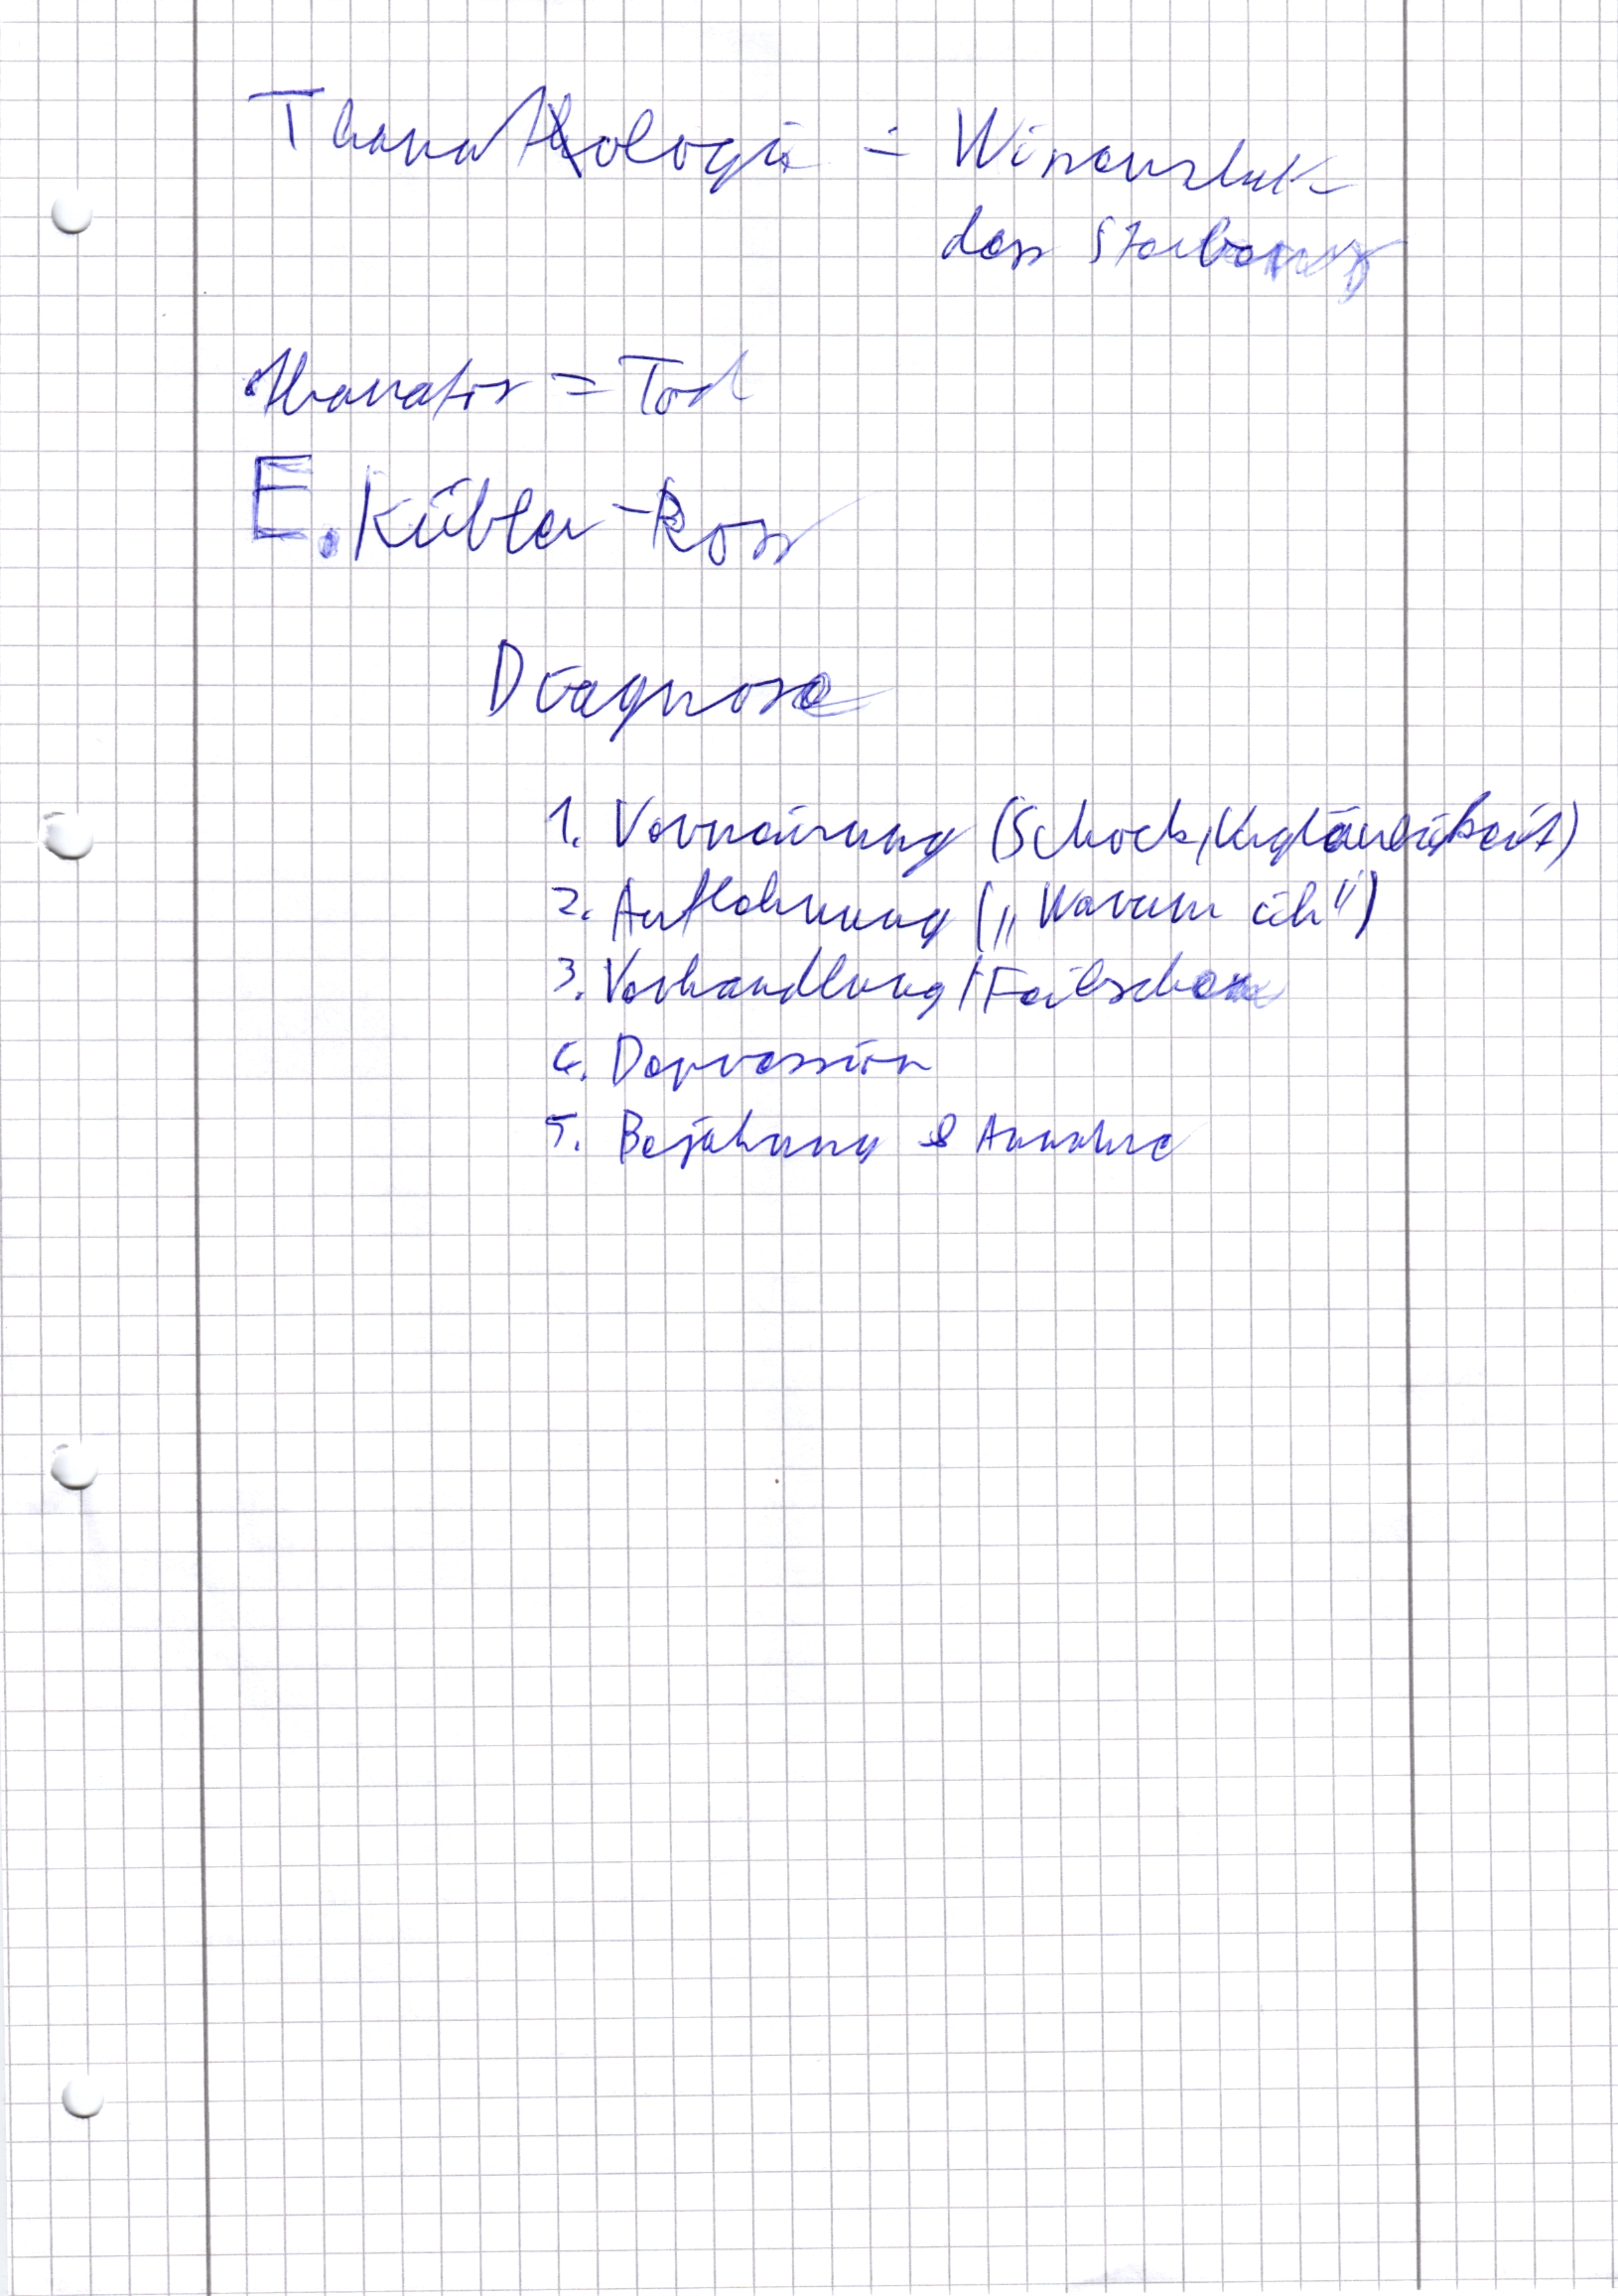 Thanatologie = Wissenschaft
des Sterbens
thanatos = Tod
E. Kübler-Ross
Diagnose
1. Verneinung (Schock, Ungläubigkeit)
2. Auflehnung („Warum ich")
3. Verhandlung / Feilschen
4. Depression
5. Bejahung & Annahme